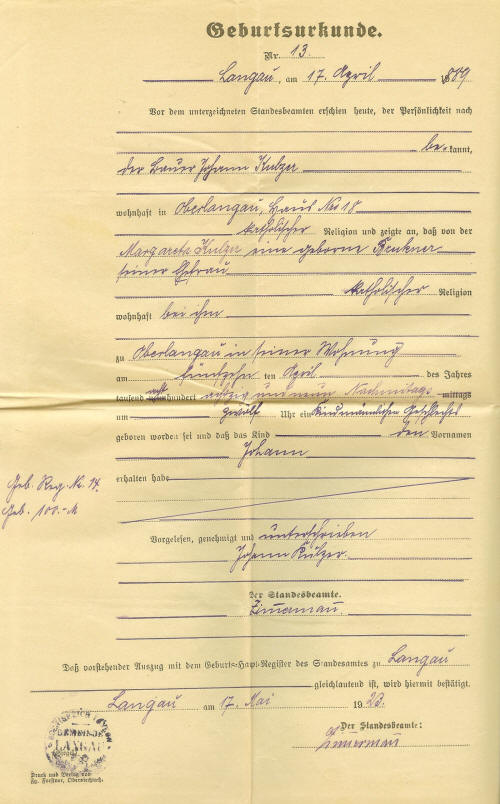 Geburtsurkunde.
Nr. 13.
Langau, am 17. April 1889
Vor dem unterzeichneten Standesbeamten erschien heute, der Persönlichkeit nach
be-kannt,
der Bauer Johann Kulzer
wohnhaft in Oberlangau, Haus No 18
katholischer Religion und zeigte an, daß von der
Margareta Kulzer eine geborne
seiner Ehefrau
katholischer Religion
wohnhaft bei ihm
zu Oberlangau in seiner Wohnung
am fünfzehn ten April des Jahres
tausend acht hundert achzig und neun Nachmittags mittags
um zwölf Uhr ein Kind männlichen Geschlechts
geboren worden sei und daß das Kind den Vornamen
Johann
erhalten habe
Geb. Reg. Nr. 17.
Geb. 100.-M
Vorgelesen, genehmigt und unterschrieben
Johann Kulzer.
Der Standesbeamte.
Daß vorstehender Auszug mit dem Geburts-Haupt-Register des Standesamtes zu Langau
gleichlautend ist, wird hiermit bestätigt.
Langau am 17. Mai 1923.
Der Standesbeamte:
GEMEINDE
LANGAU
Druck und Verlag von